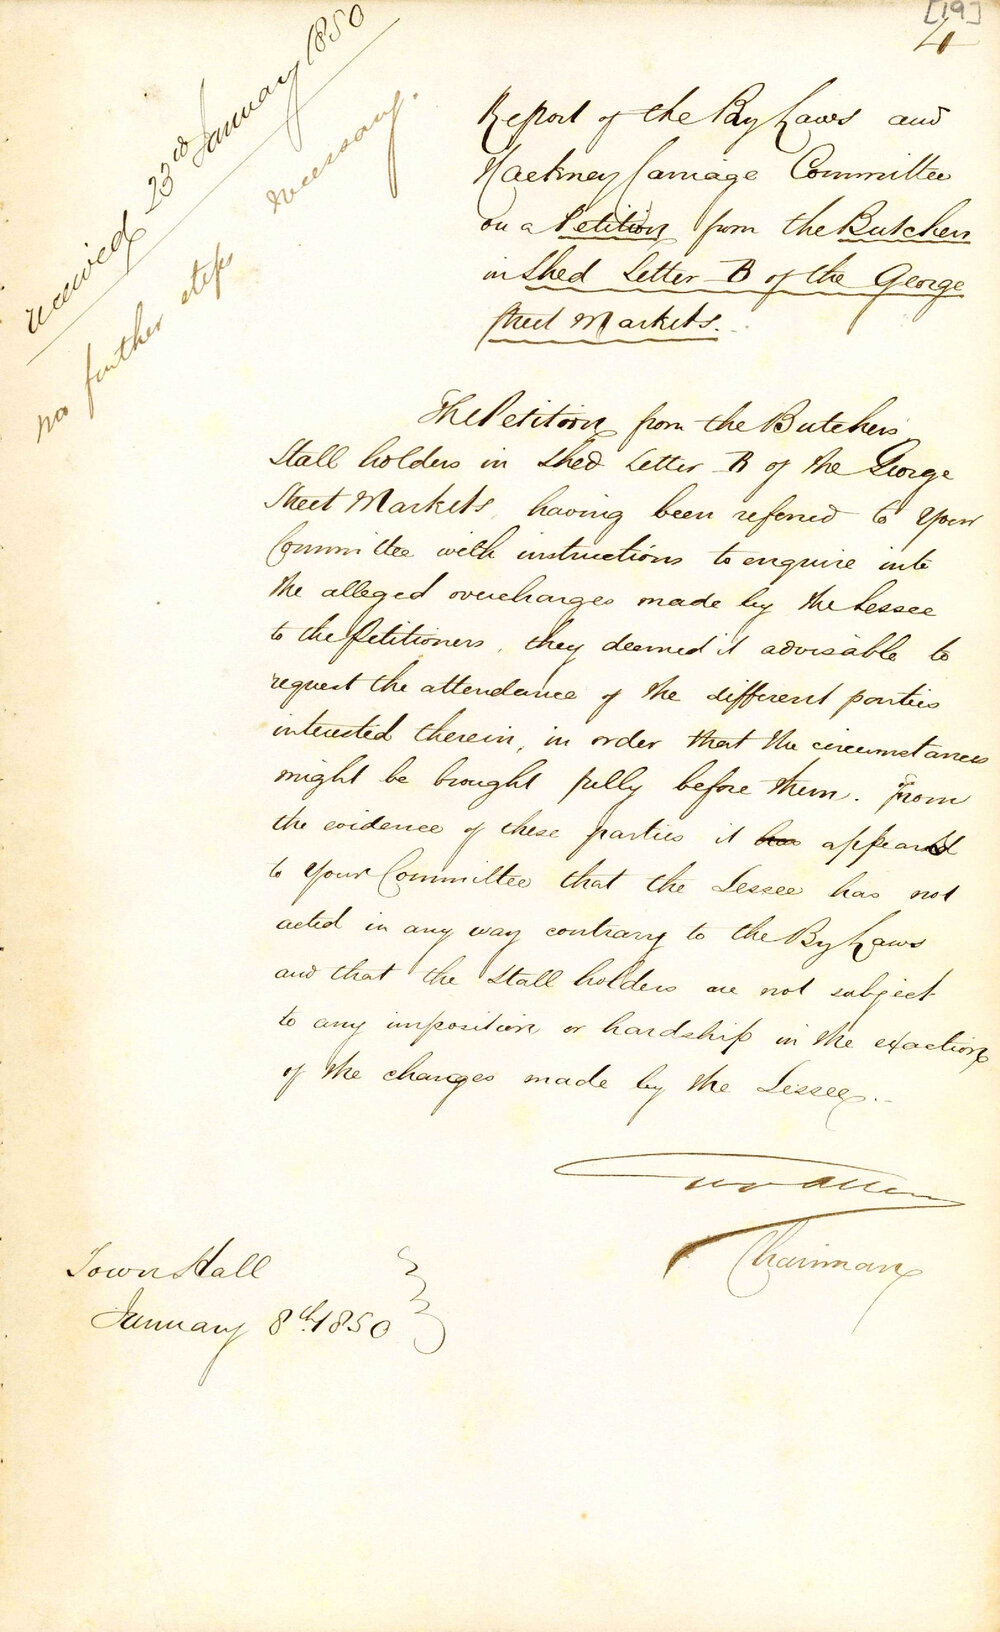 [19]
4
received 23rd January 1850
no further steps necessary.
Report of the By Laws and
Hackney Carriage Committee
on a Petition from the Butchers
in Shed Letter B of the George
Street Markets.
The Petition from the Butchers
Stall holders in Shed Letter B of the George
Street Markets, having been referred to Your
Committee with instructions to enquire into
the alleged overcharges made by the Lessee
to the Petitioners, they deemed it advisable to
request the attendance of the different parties
interested therein, in order that the circumstances
might be brought fully before them. From
the evidence of these parties it has appeared
to Your Committee that the Lessee has not
acted in any way contrary to the By Laws
and that the Stall holders are not subject
to any imposition or hardship in the exaction
of the charges made by the Lessee.
Allen
Chairman
Town Hall
January 8th 1850